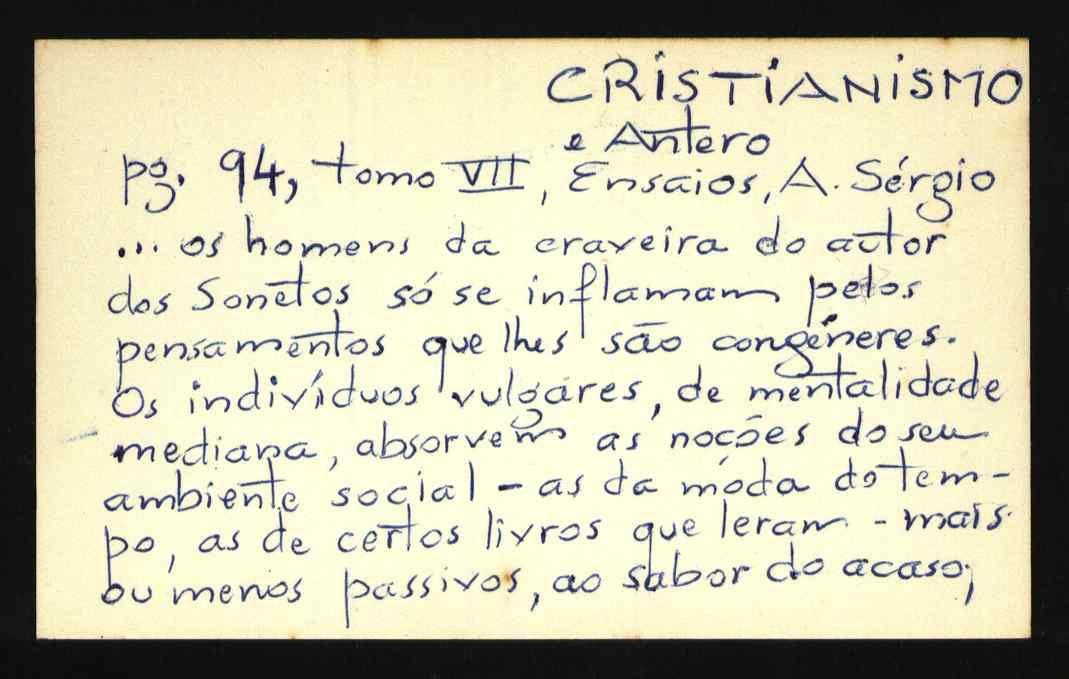 CRISTIANISMO
e Antero
pg. 94, tomo VII, Ensaios, A. Sérgio
... os homens da craveira do autor
dos Sonetos só se inflamam pelos
pensamentos que lhes são congéneres.
Os indivíduos vulgares, de mentalidade
mediana, absorvem as noções do seu
ambiente social - as da móda do tem-
po, as de certos livros que leram - mais
ou menos passivos, ao sabor do acaso;